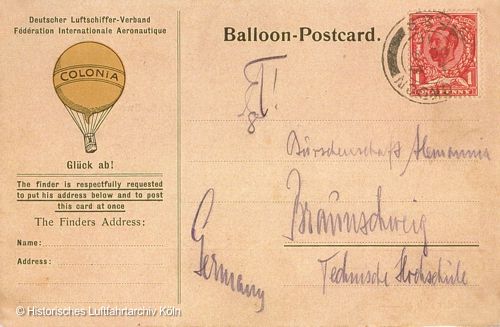 Deutscher Luftschiffer-Verband
Fédération Internationale Aeronautique
COLONIA
Glück ab!
The finder is respectfully requested
to put his address below and to post
this card at once
The Finders Address:
Name:
Address:
Balloon-Postcard.
Burschenschaft Alemannia
Braunschweig
Technische Hochschule
Germany
© Historisches Luftfahrtarchiv Köln